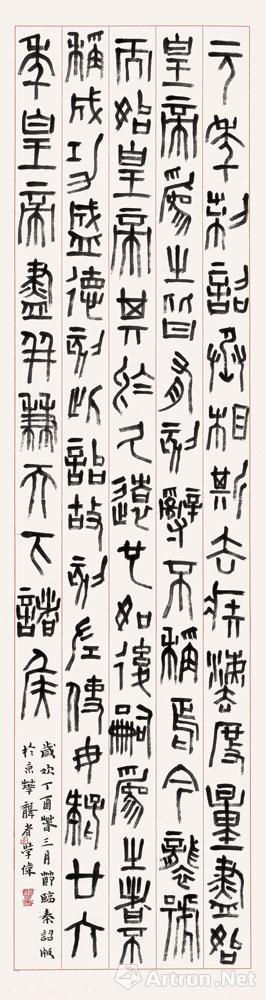 元年制詔丞相斯去疾灋度量盡始
皇帝為之皆有刻辭不稱焉今襲號
而始皇帝其於久遠也如後嗣為之者不
稱成功盛德刻此詔故刻左使毋疑廿六
年皇帝盡并兼天下諸侯
歲次丁酉三月節臨秦詔版
於京華聾者學偉
Artron.Net